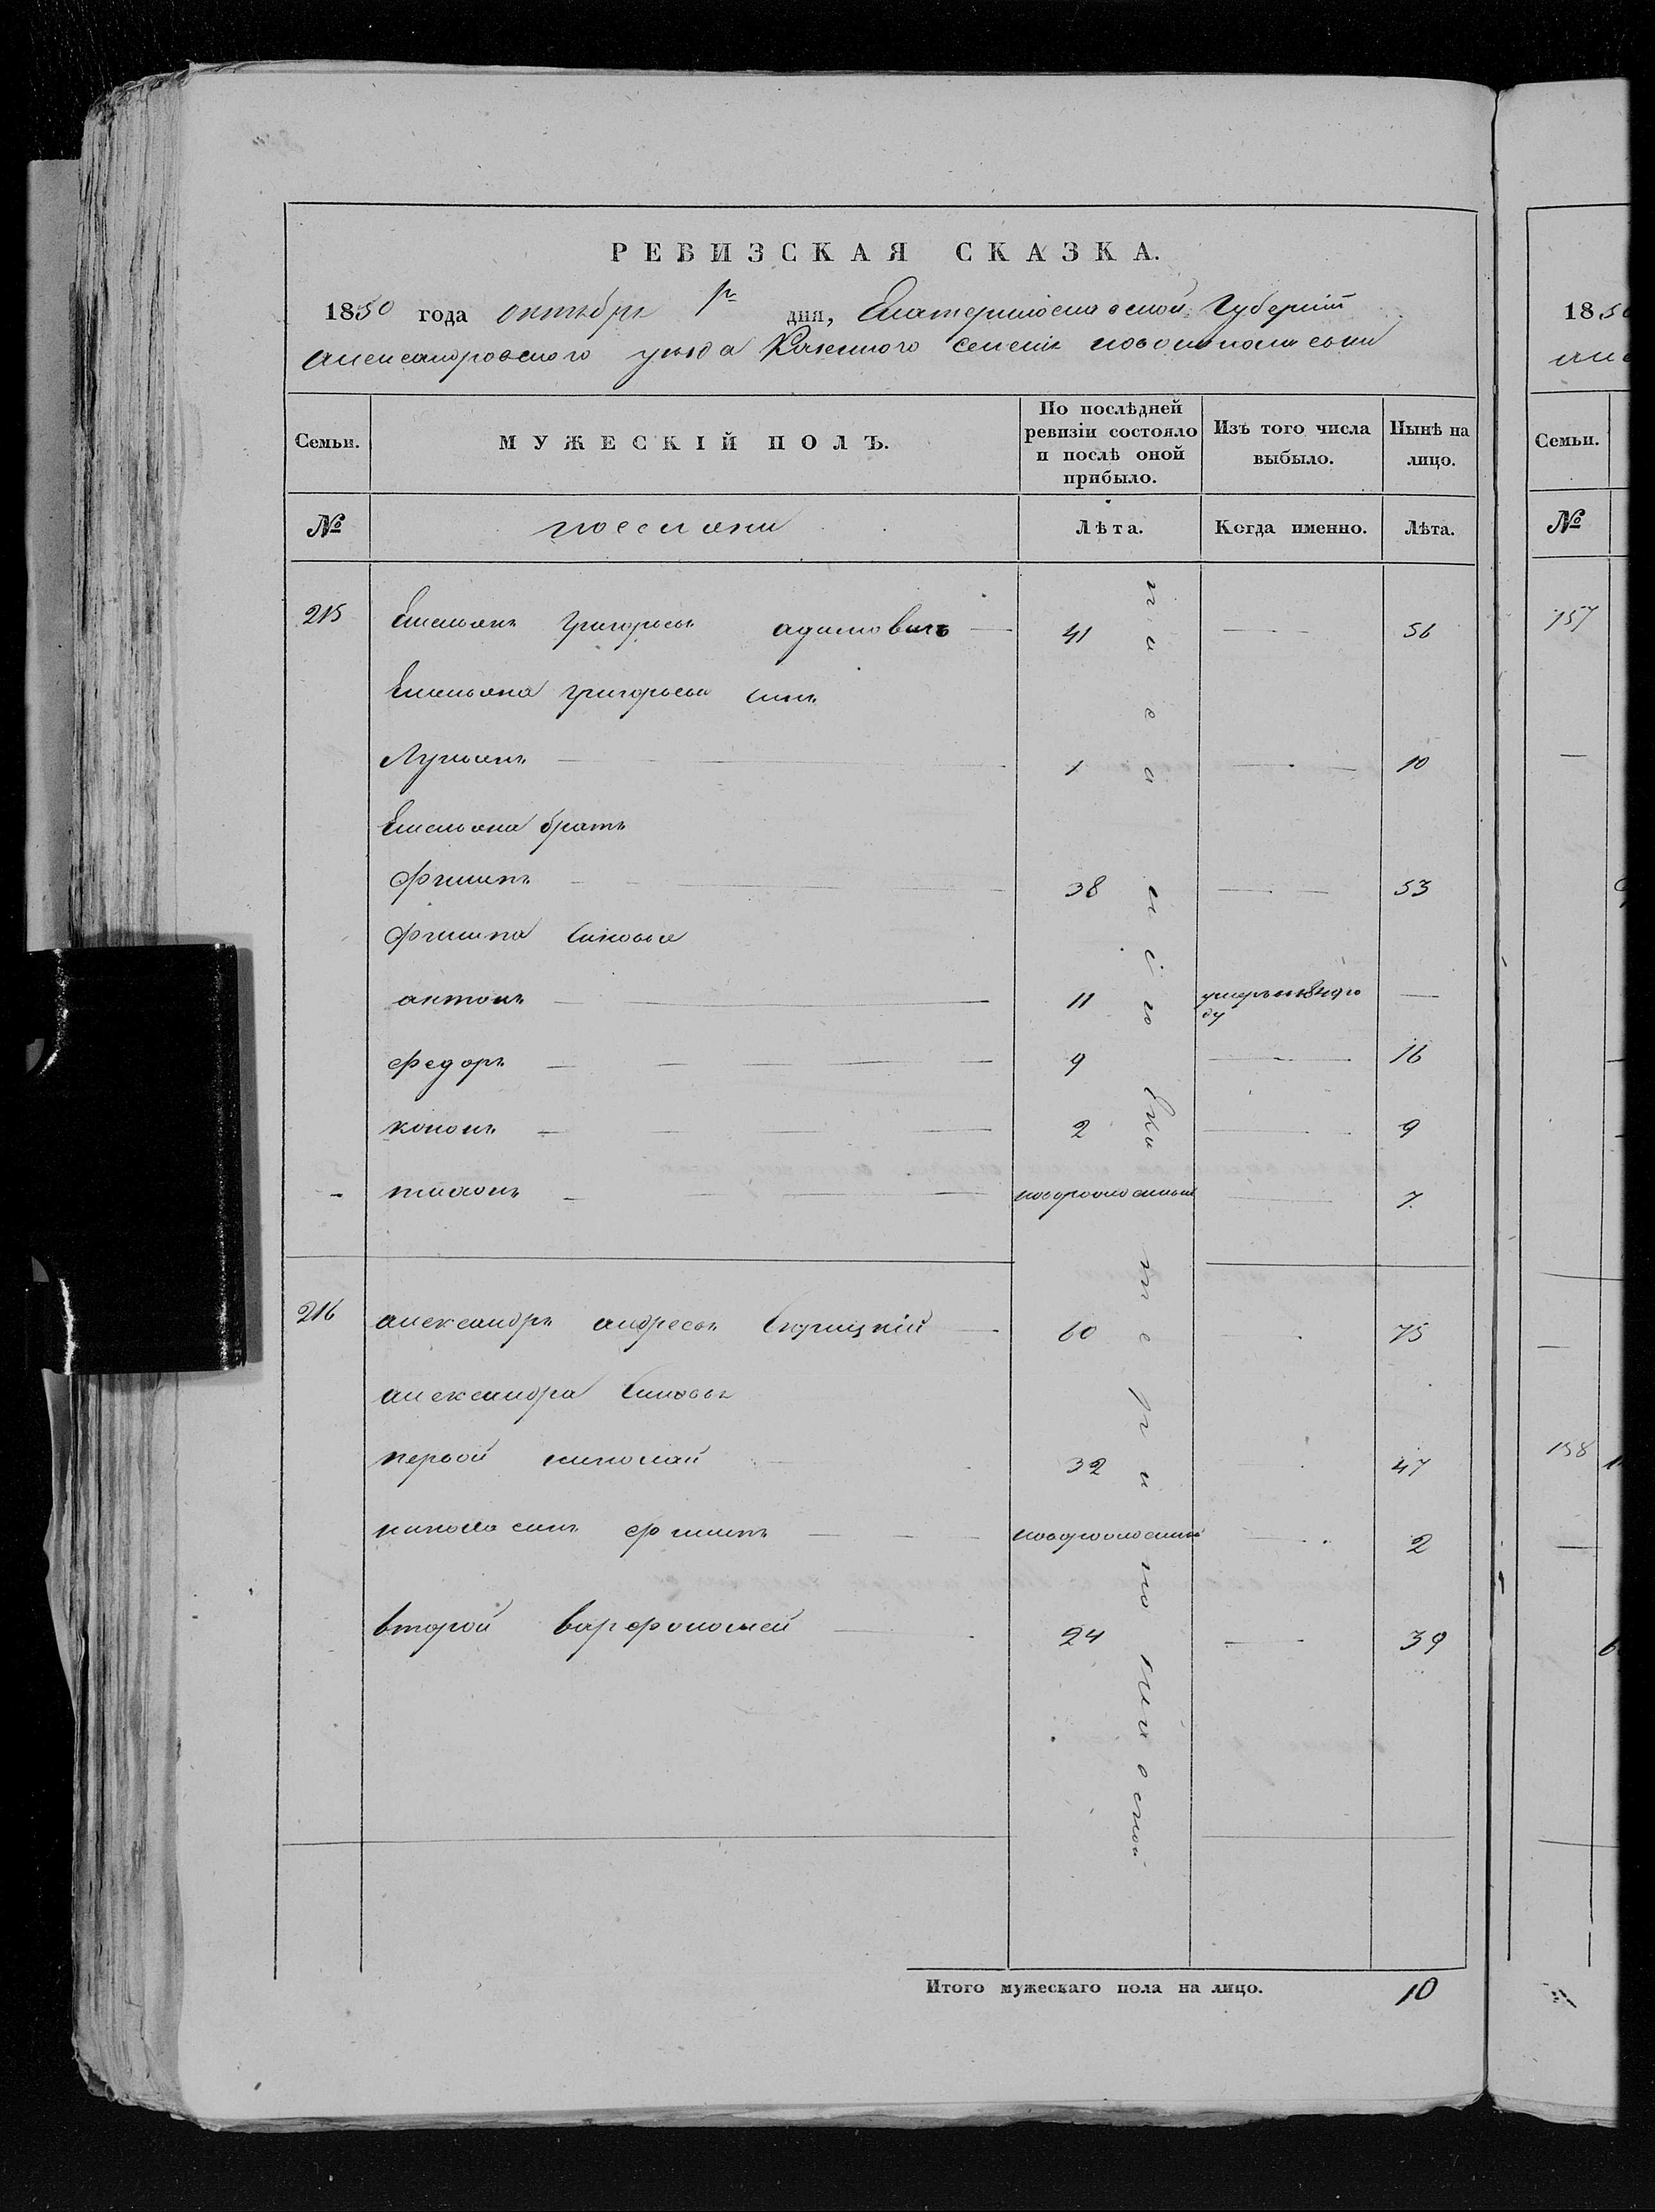 РЕВИЗСКАЯ СКАЗКА.
1850 года октября 1го дня, Екатеринославской Губернии
Александровского уезда Казенного селения
Семьи. МУЖЕСКІЙ ПОЛЪ. По послѣдней ревизіи состояло и послѣ оной прибыло. Изъ того числа выбыло. Нынѣ на лицо.
№ поселяни Лѣта. Когда именно. Лѣта.
215 Емельянъ Григорьевъ адамовичъ 41 56
Емельяна григорьева сынъ
Лукьянъ 1 10
Емельяна братъ
Филипъ 38 53
Филипа Сыновья
антонъ 11
федоръ 9 16
кононъ 2 9
тихонъ новорожденный 7.
216 александръ андреевъ Скрицкій 60 75
александра Сыновья
первой николай 32 47
никола сынъ филипъ новорожденный 2
второй варфоломей 24 39
Итого мужескаго пола на лицо. 10
1850
Семьи.
№
157
158